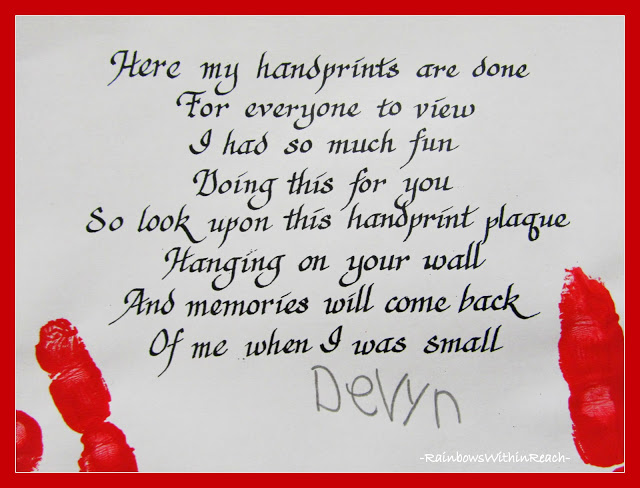 Here my handprints are done
For everyone to view
I had so much fun
Doing this for you
So look upon this handprint plaque
Hanging on your wall
And memories will come back
Of me when I was small
Devyn
-RainbowsWithinReach-